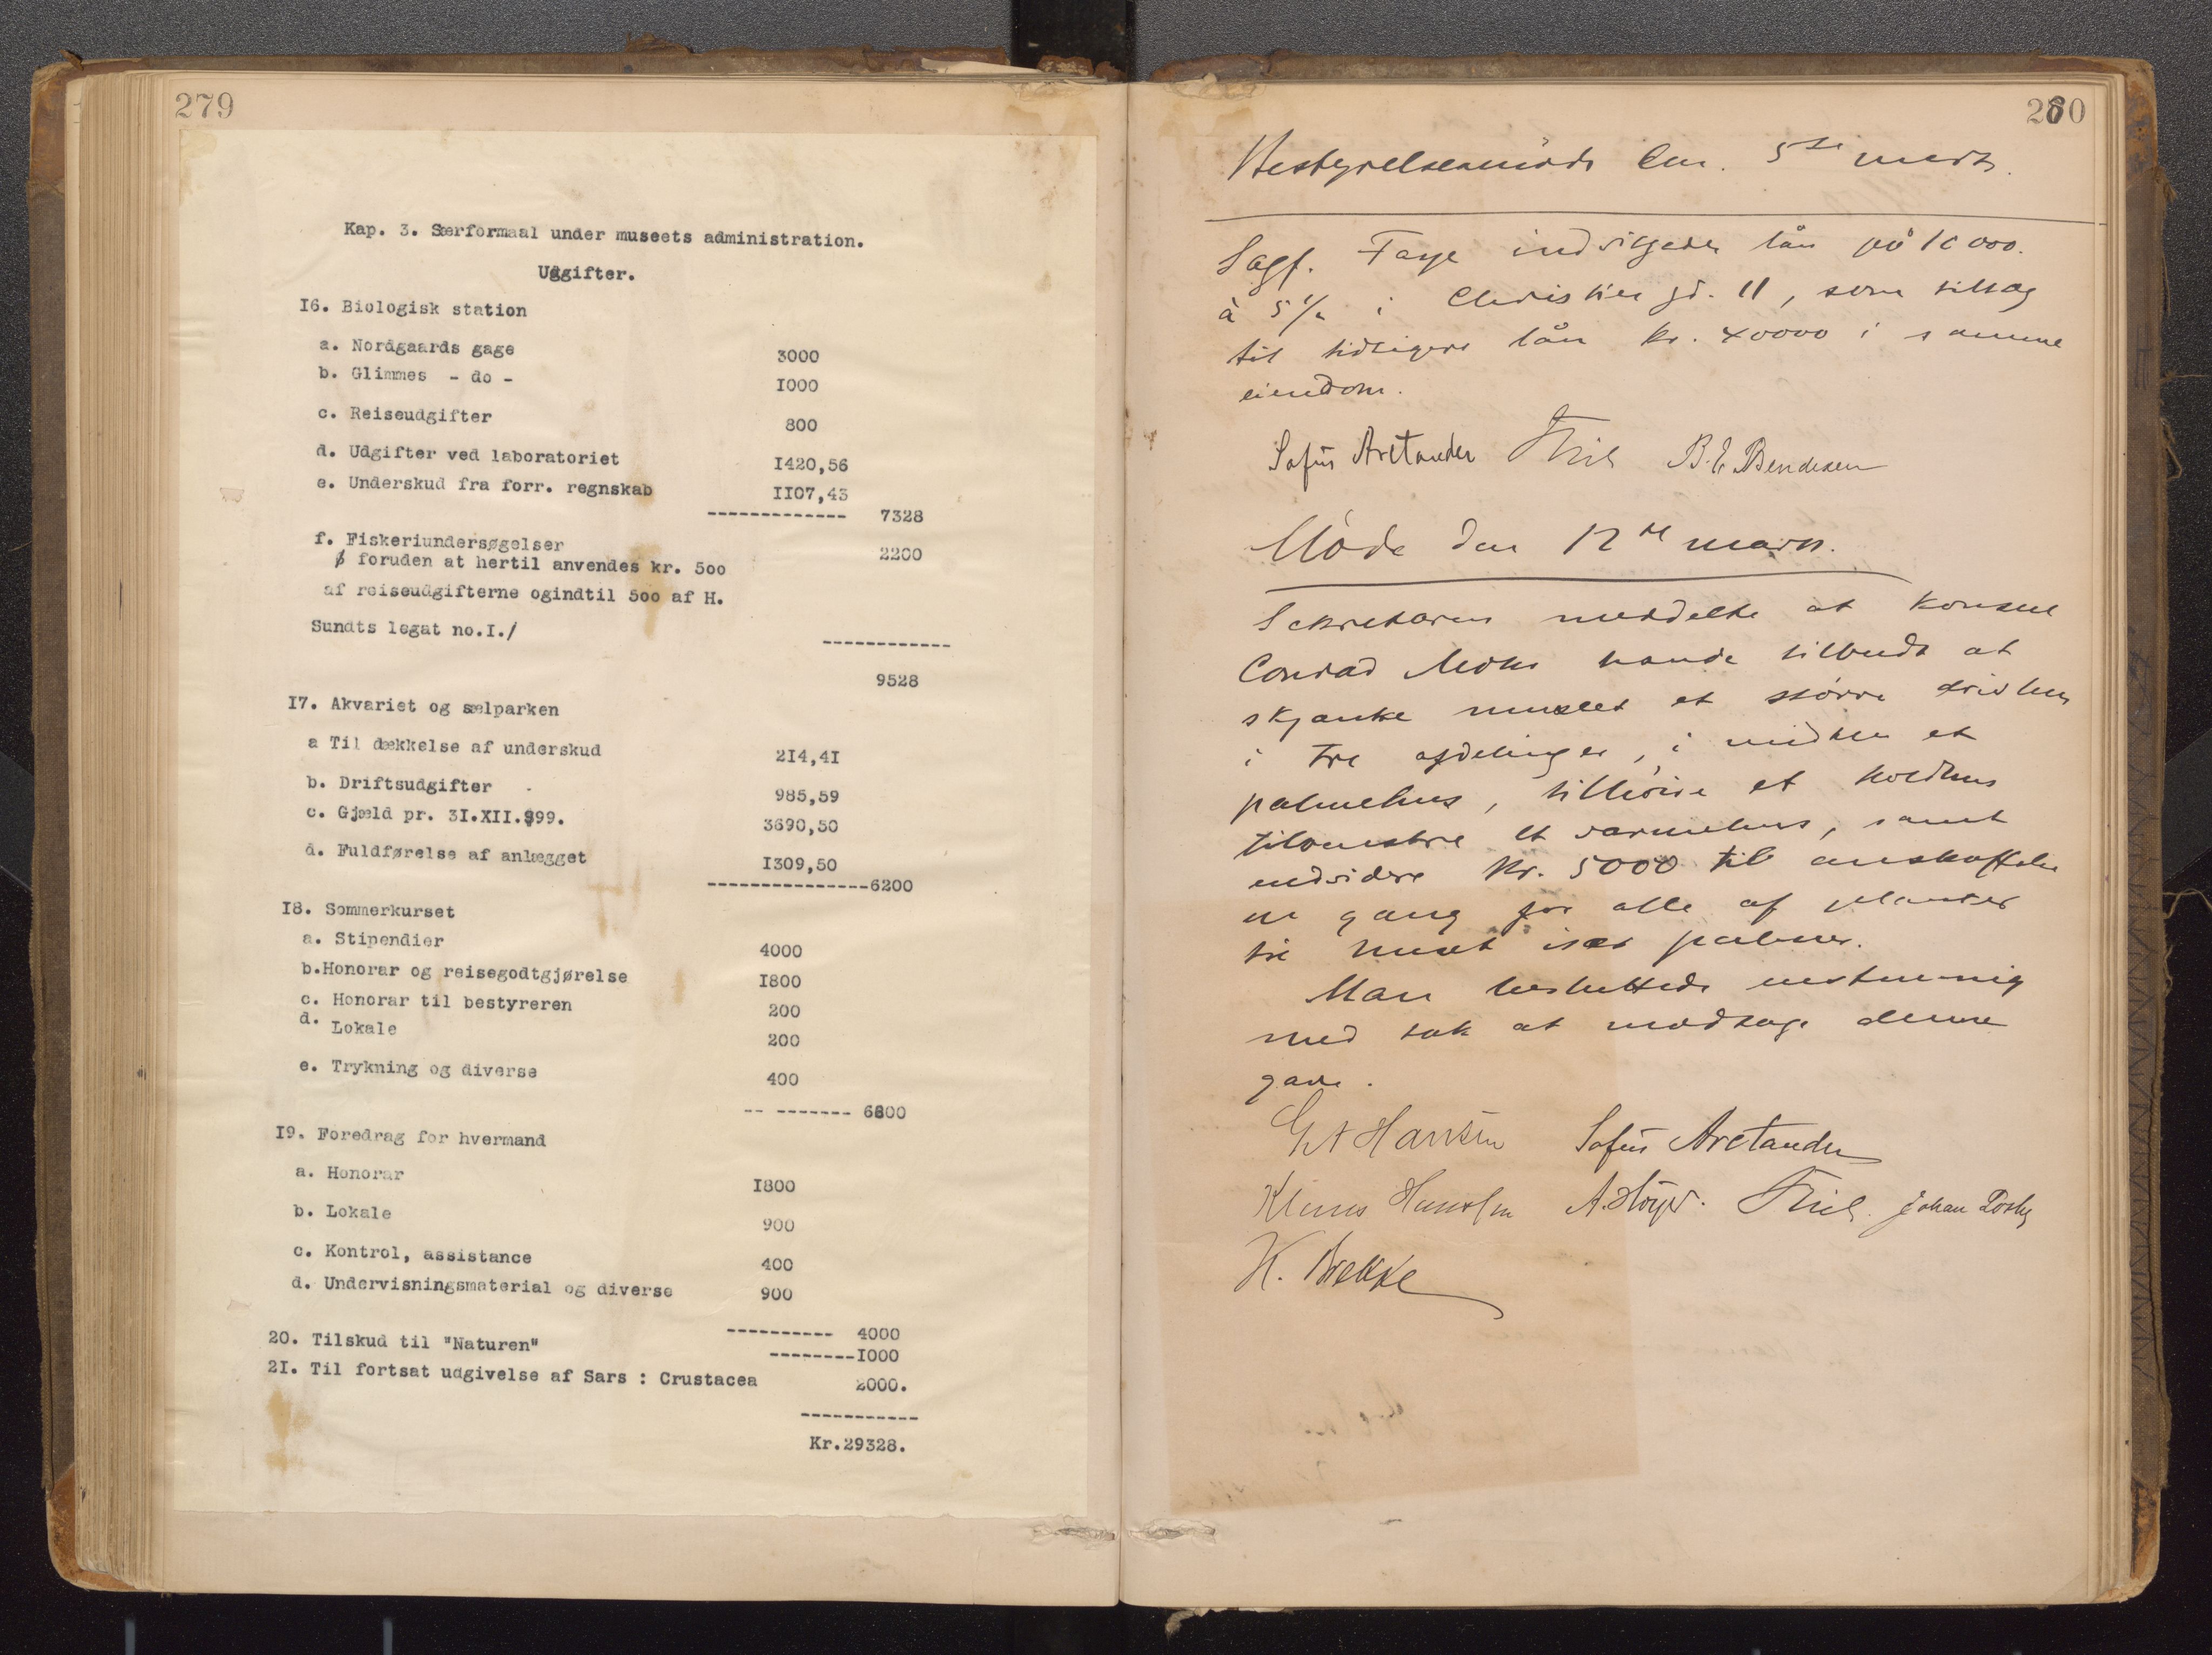 279
Kap. 3. Særformaal under museets administration.
Udgifter.
I6. Biologisk station
a. Nordgaards gage 3000
b. Glimmes - do - I000
c. Reiseudgifter 800
d. Udgifter ved laboratoriet I420,56
e. Underskud fra forr. regnskab II07,43
------------- 7328
f. Fiskeriundersøgelser 2200
/ foruden at hertil anvendes kr. 500
af reiseudgifterne ogindtil 500 af H.
Sundts legat no.I./
------------
9528
I7. Akvariet og sælparken
a Til dækkelse af underskud 2I4,4I
b. Driftsudgifter 985,59
c. Gjæld pr. 3I.XII.999. 3690,50
d. Fuldførelse af anlægget I309,50
---------------6200
I8. Sommerkurset
a. Stipendier 4000
b.Honorar og reisegodtgjørelse I800
c. Honorar til bestyreren 200
d. Lokale 200
e. Trykning og diverse 400
-- ------- 6600
I9. Foredrag for hvermand
a. Honorar I800
b. Lokale 900
c. Kontrol, assistance 400
d. Undervisningsmaterial og diverse 900
---------- 4000
20. Tilskud til "Naturen" --------I000
2I. Til fortsat udgivelse af Sars : Crustacea 2000.
-----------
Kr.29328.
280
Bestyrelsesmöde den. 5te marts.
Sagf. Faye indvilgedes lån på 10000.
à 5 % i Christies gd. 11, som tillæg
til tidligere lån kr. 40000 i samme
eiendom.
Sofus Arctander Friele B. E. Bendixen
Möde den 12te marts.
Sekretæren meddelte at konsul
Conrad Mohr havde tilbudt at
skjænke museet et större drivhus
i tre afdelinger, i midten et
palmehus, tilhöire et koldhus
tilvenstre et varmehus, samt
endvidere kr. 5000 til anskaffelse
en gang for alle af planter
til huset især palmer.
Man besluttede enstemmig
med tak at modtage denne
gave.
G A Hansen Sofus Arctander
Klaus Hanssen A. Höyer. Friele. Johan
H. Brekke